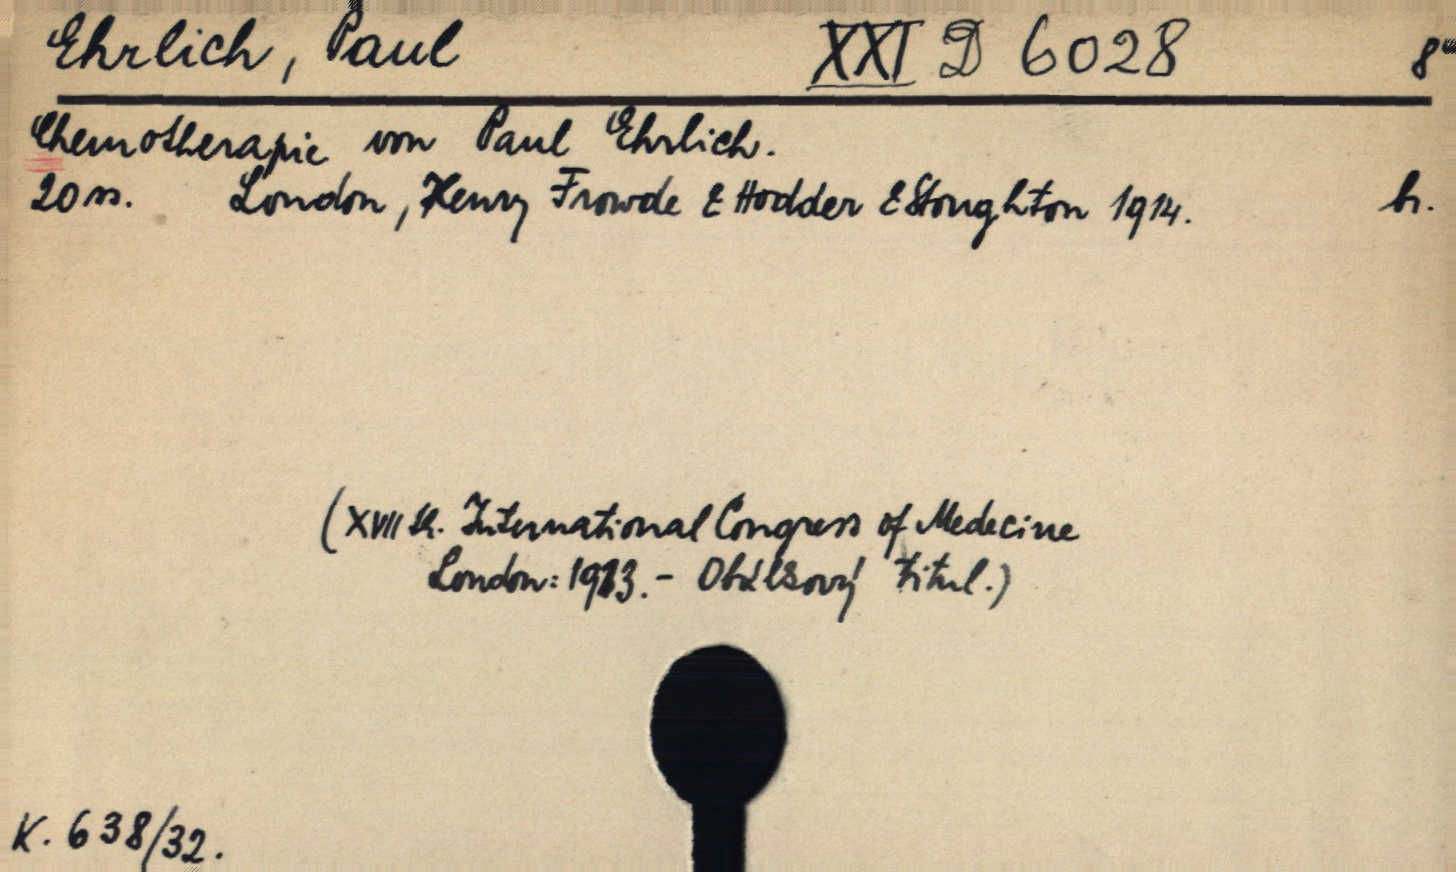 Ehrlich, Paul XXI D 6028 8°
Chemotherapie von Paul Ehrlich.
20 ss. London, Henry Frowde & Hodder & Stoughton 1914. br.
(XVII th. International Congress of Medecine
London: 1913. - Obálkový titul.)
K. 638/32.